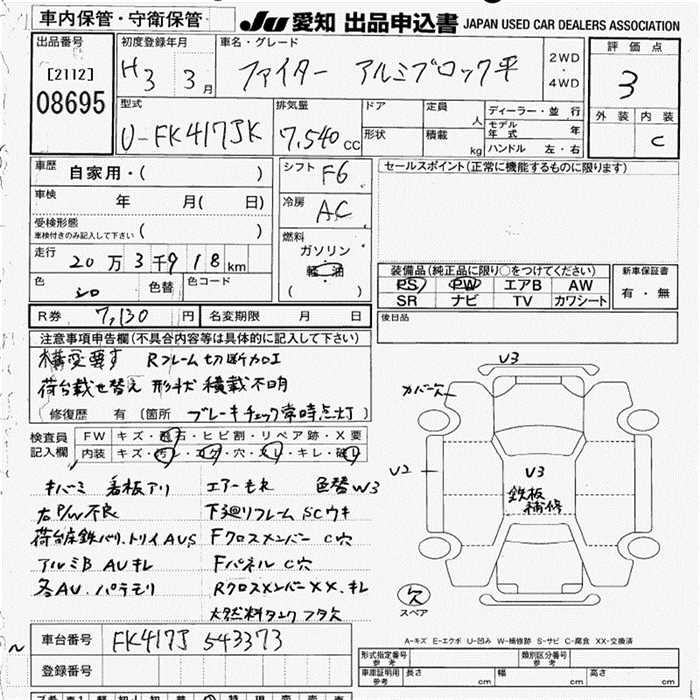 車内保管・守衛保管 JU 愛知 出品申込書 JAPAN USED CAR DEALERS ASSOCIATION
出品番号 [2112] 08695
初度登録年月 H3 3月
車名・グレード ファイター アルミブロック平 2WD・4WD
評価点 3
型式 U-FK417JK
排気量 7,540cc
ドア 定員 人
形状 積載 kg
ディーラー・並行
モデル年式 年
ハンドル 左・右
外装 内装 C
車歴 自家用・( )
車検 年 月( 日)
受検形態 車検付きのみ記入して下さい ( )
走行 20万3千918km
色 シロ 色替 色コード
シフト F6
冷房 AC
燃料 ガソリン 軽油 ( )
セールスポイント(正常に機能するものに限ります)
装備品(純正品に限り○をつけてください) 新車保証書
PS PW エアB AW 有・無
SR ナビ TV カワシート
R券 7,130円 名変期限 月 日
後日品
注意事項申告欄(不具合内容等は具体的に記入して下さい)
構変要す Rフレーム切断加工
荷台載せ替え 形状積載不明
修復歴 有 [箇所 ブレーキチェック常時点灯]
検査員記入欄 FW キズ・飛石・ヒビ割・リペア跡・X要
内装 キズ・汚レ・コゲ・穴・スレ・キレ・破レ
V3
カバー欠
V2
V3
鉄板補修
キバミ 看板アリ エアーモレ 色替W3
右P/W不良 下廻リフレームSCウキ
荷台床鉄バリ、トリイAUS Fクロスメンバー C穴
アルミB AUキレ Fパネル C穴
各AU.パテモリ RクロスメンバーXX.キレ
大燃料タンクフタ欠
欠
スペア
A-キズ E-エクボ U-凹み W-補修跡 S-サビ C-腐食 XX-交換済
車台番号 FK417J 543373
登録番号
形式指定番号 参考 類別区分番号 参考
車庫証明用 参考 長さ cm 幅 cm 高さ cm